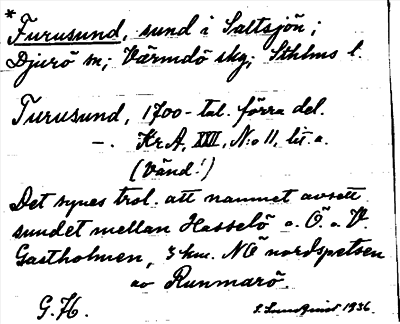 * Furusund, sund i Saltsjön;
Djurö sn; Värmdö skg; Sthlms l.
Furusund, 1700-tal. förra del.
—. Kr A, XXII, N:o 11, lit. a.
(Vänd!)
Det synes trol. att namnet avsett
sundet mellan Hasselö o. Ö. o. V.
Gastholmen, 3 km. NÖ nordspetsen
av Runmarö.
G. H. S. Lundquist 1936.